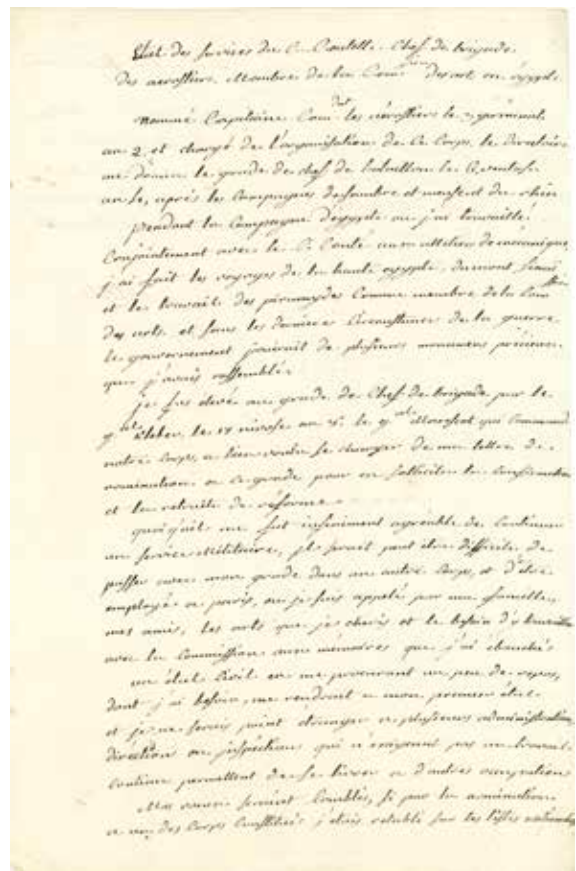 Etat des services du C. Coutelle Chef de brigade
des aerostiers Membre de la Com.sion des art en égypte
nommé Capitaine Com.dt les aérostiers le germinal
an 2 et chargé de l'organisation de ce Corps, le Directoire
me donna le grade de chef de bataillon le ventose
an 4e, après les Campagnes de sambre et meuse et du rhin
pendant la Campagne d'egypte ou j'ai travaillé
Conjointement avec le C. Conté aux atteliers de mécanique,
j'ai fait les voyages de la haute egypte, du mont sinaï
et le travail des piramydes Comme membre de la Com.sion
des arts. et sans les dernieres Circonstances de la guerre
le gouvernement jouirait de plusieurs monumens précieux
que j'avais rassemblés
je fus élevé au grade de Chef de brigade par le
g.al Kleber, le 17 nivose an 8. le g.al qui Command
notre Corps, a bien voulu se charger de ma lettre de
nomination a ce grade pour en solliciter la Confirmation
et la retraite de réforme.
quoiqu'il me fut infiniment agréable de Continuer
un service Militaire, il serait peut être difficile de
passer avec mon grade dans un autre Corps, et d'être
employé a paris, ou je suis appelé par ma famille,
mes amis, les arts que je cheris et le besoin d'y travailler
avec la Commission aux mémoires que j'ai ébauchés
un état Civil en me procurant un peu de repos,
dont j'ai besoin, me rendrait a mon premier état
et je ne serais point étranger a plusieurs administration,
direction ou inspections qui n'exigeant pas un travail
Continu permettent de se livrer a d'autres occupations
Mes voeux seraient Comblés, si par la nomination
a un des Corps Constitués j'étais rétabli sur les listes